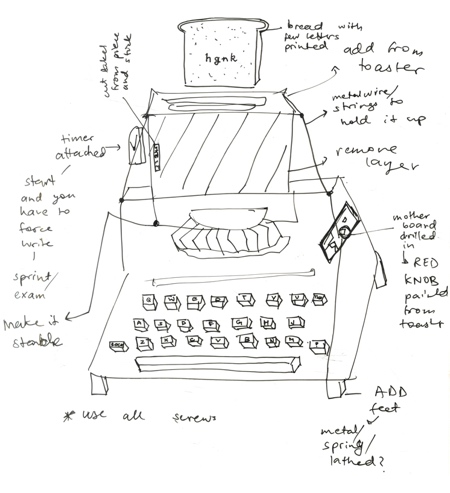 bread with
few letters
printed
hgnk
add from
toaster
cut label
from piece
and stick
metal wire/
strings to
hold it up
timer
attached
remove
layer
start
and you
have to
force
write
sprint/
exam
mother
board
drilled
in
RED
KNOB
painted
from
Make it
stable
ADD
feet
metal/
spring/
lathed?
* use all screws